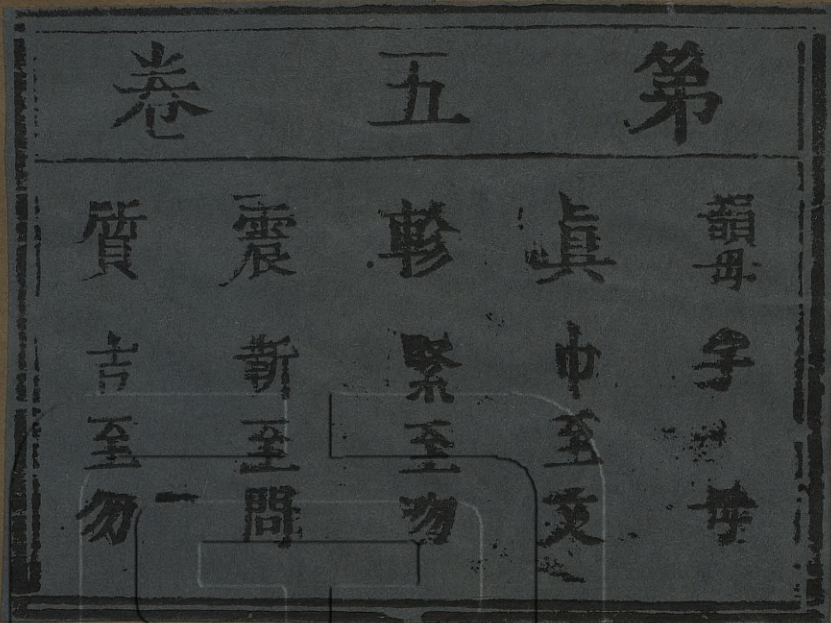 第五卷
韻母 字母
眞 巾至文
軫 緊至吻
震 靳至問
質 吉至勿